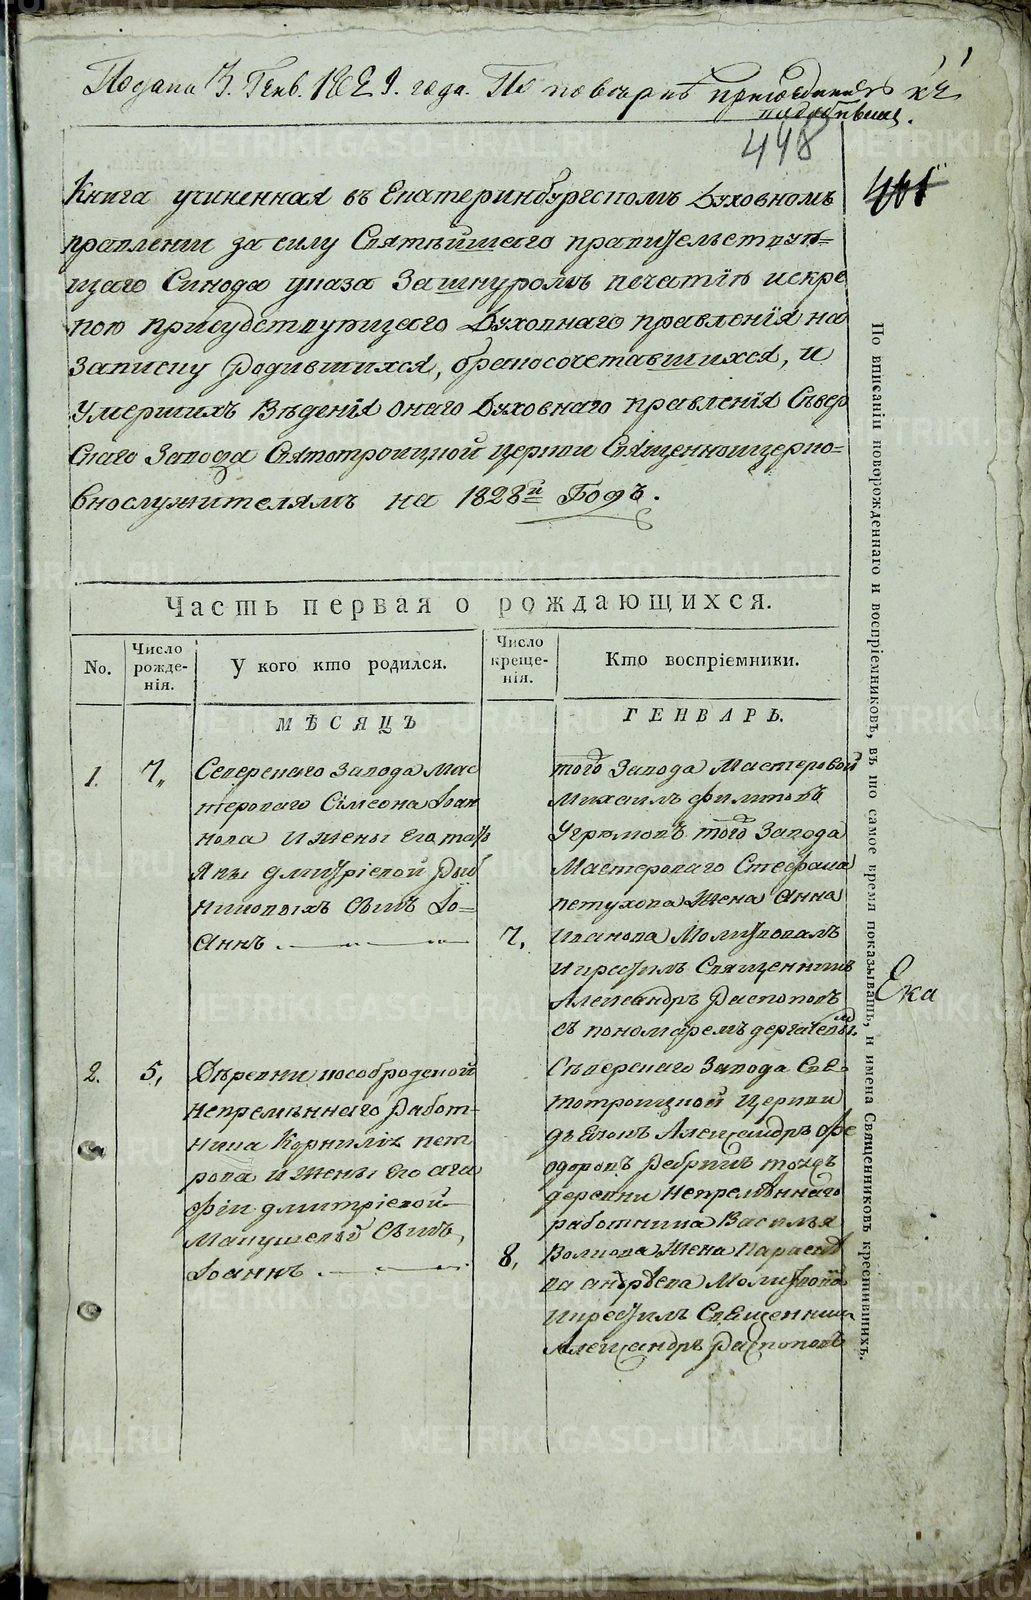 Подана 3. Генв. 1829. года. По поверкѣ приобщить къ
подобнымъ.
1
448
461
Книга учиненная въ Екатеринбургскомъ Духовномъ
правленіи за силу Святѣйшаго правительствую=
щаго Синода указа За шнуромъ печатію и скре
пою присудствующаго Духовнаго правленія на
Записку Родившихся, бракосочетавшихся, и
Умершихъ Вѣденія онаго Духовнаго правленія Сѣвер
скаго Завода Святотроицкой церкви Священноцерко=
внослужителямъ на 1828й Годъ.
Часть первая о рождающихся.
No.
Число рожде-нія.
У кого кто родился.
Число креще-нія.
Кто воспріемники.
МѢСЯЦЪ
ГЕНВАРЬ.
1.
7,,
Северскаго Завода Мас
тероваго Сімеона Іоан
нова и жены его тать
яны дмитріевой Рыб
никовыхъ сынъ Іо=
Аннъ.
7,
того Завода Мастеровой
Михаилъ Филиповъ
Угрюмовъ того Завода
Мастероваго Стефана
петухова Жена Анна
Иванова Молитвовалъ
и крестилъ Священникъ
Александръ Распоповъ
съ пономаремъ дергачевымъ.
2.
5,
Дѣревни кособродской
непремѣннаго Работ-
ника Корниліа пет
рова и Жены его ага
фіи дмитріевой
Макушевой Сынъ,
Іоаннъ.
8,
Сѣверскаго Завода Свя
тотроицкой Церкви
дьячокъ Александръ Фе
одоровъ Ребринъ тоежъ
деревни непремѣннаго
работника Василья
Волкова Жена Параскѣ
ва андрѣева Молитвовалъ
и крестилъ Священникъ
Александръ Распоповъ
По вписаніи новорожденнаго и воспріемниковъ, въ то самое время показывать, и имена Священниковъ крестившихъ.
Ека